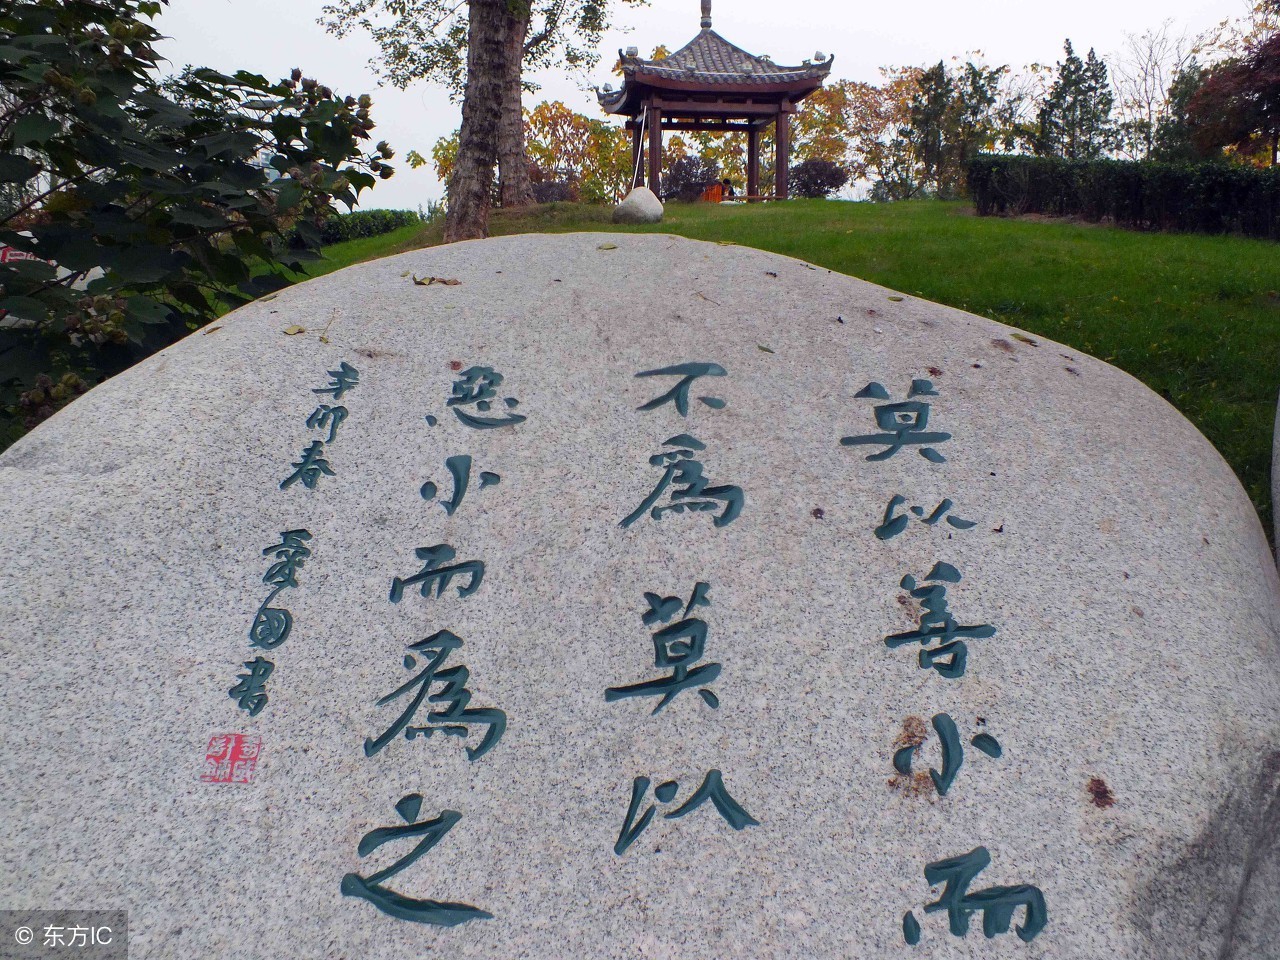 莫以善小而
不為莫以
惡小而為之
辛卯春 愛國書
© 东方IC